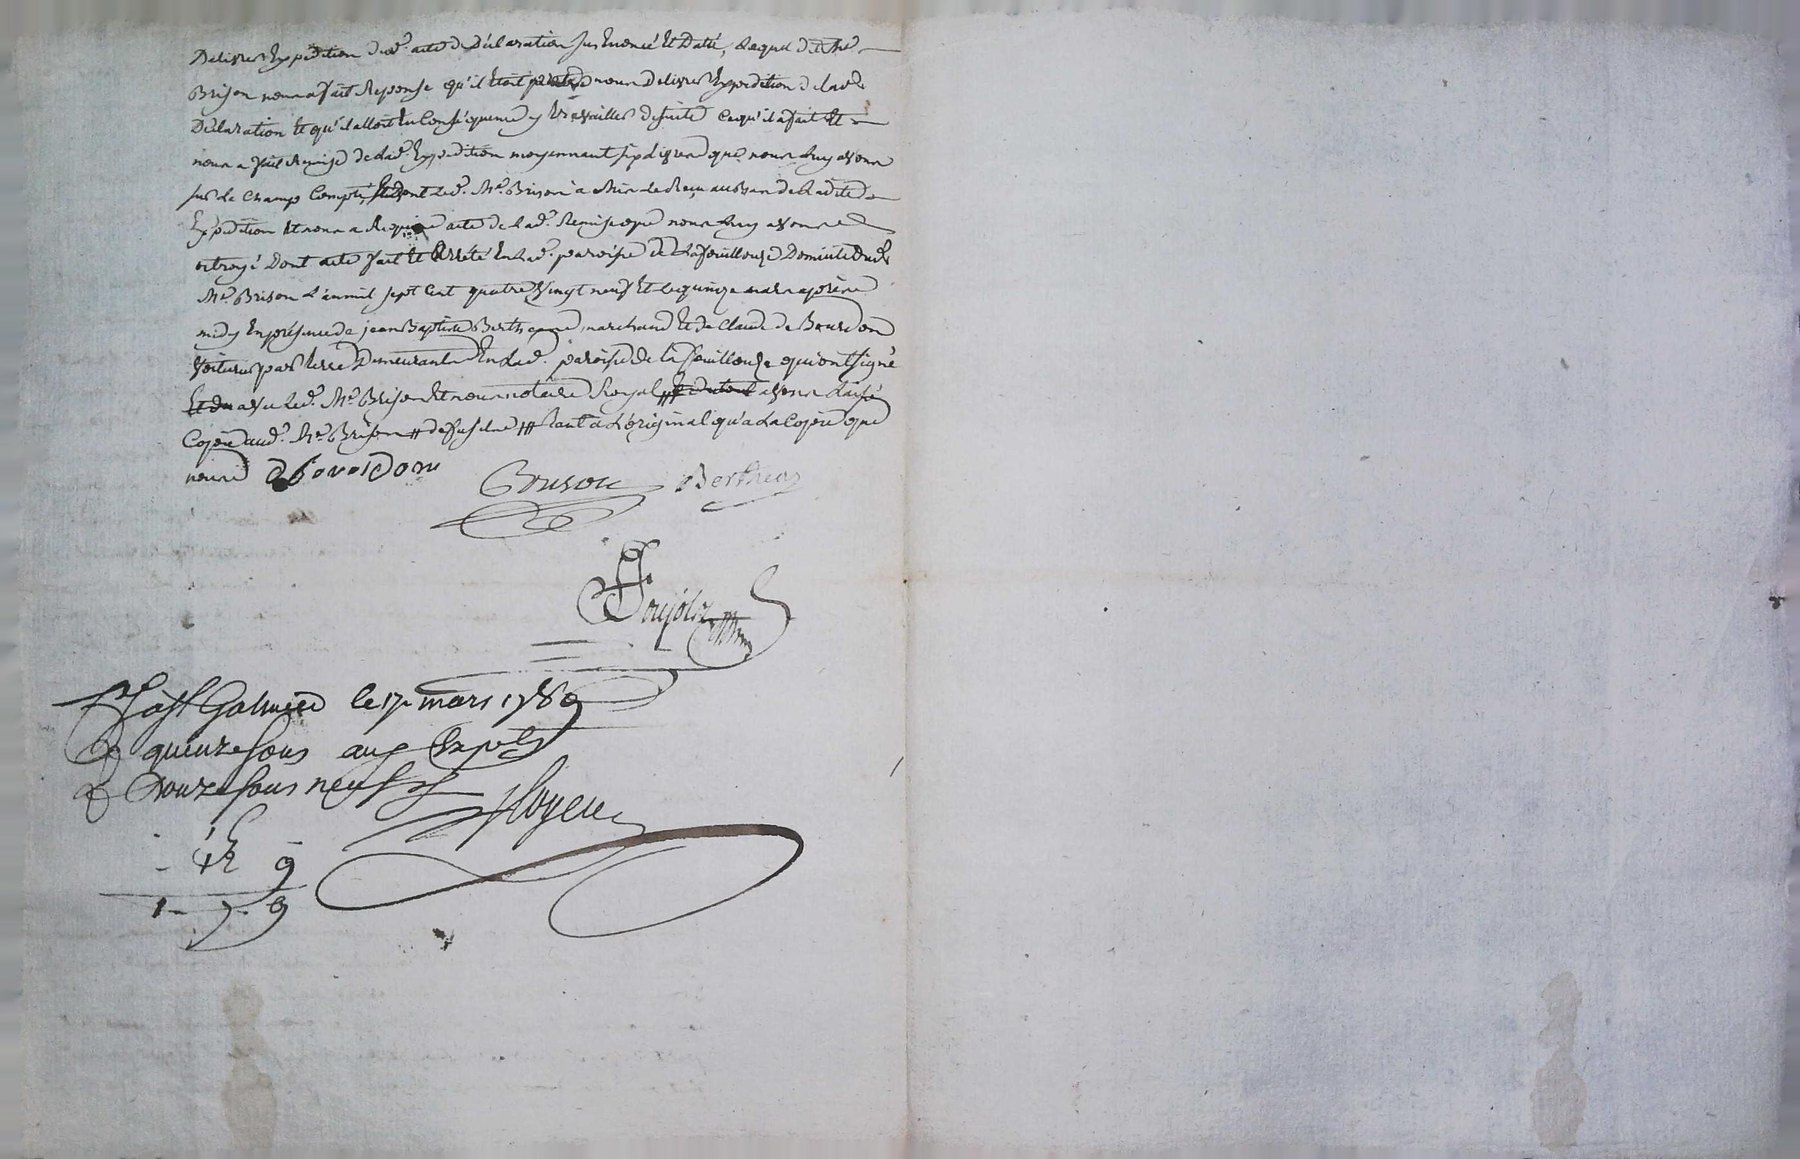 Delivrer Expedition dud. acte de Déclaration sus Enoncé Et Datté, Lequel dit Me
Brison nous a fait Reponse qu'il Etoit pret de nous Delivrer Expedition de lad.
Déclaration Et qu'il alloit En Conséquence y travailler desuite Cequ'il a fait Et
nous a fait Remise de Lad. Expedition moyennant six Livres que nous Luy avons
sur Le Champ Compté Led. Me. Brison a Mis Le Reçu au Bas de Ladite
Expedition Et nous a Requis acte de Lad. Remise que nous Luy avons
octroyé Dont acte fait Et Arrété En Lad. paroisse de Lafouillouze Domicile dud.
Me. Brison L'an mil sept Cent quatre Vingt neuf Et Le quinze mars après
midy En présence de jean Baptiste marchand Et de Claude de Bourdon
Voiturier par terre Demeurants En Lad. paroisse de La fouillouze qui ont signé
avec Led. Me. Brison Et nous notaire Royal avons Laissé
Copie aud. Me. Brison # de tant a L'original qu'a La Copie que
nous
Brison
a st Galmier le 17 mars 1789
R quinze sous aux Exploits
R Douze sous neuf d
15
- 12 9
1 - 7 - 9